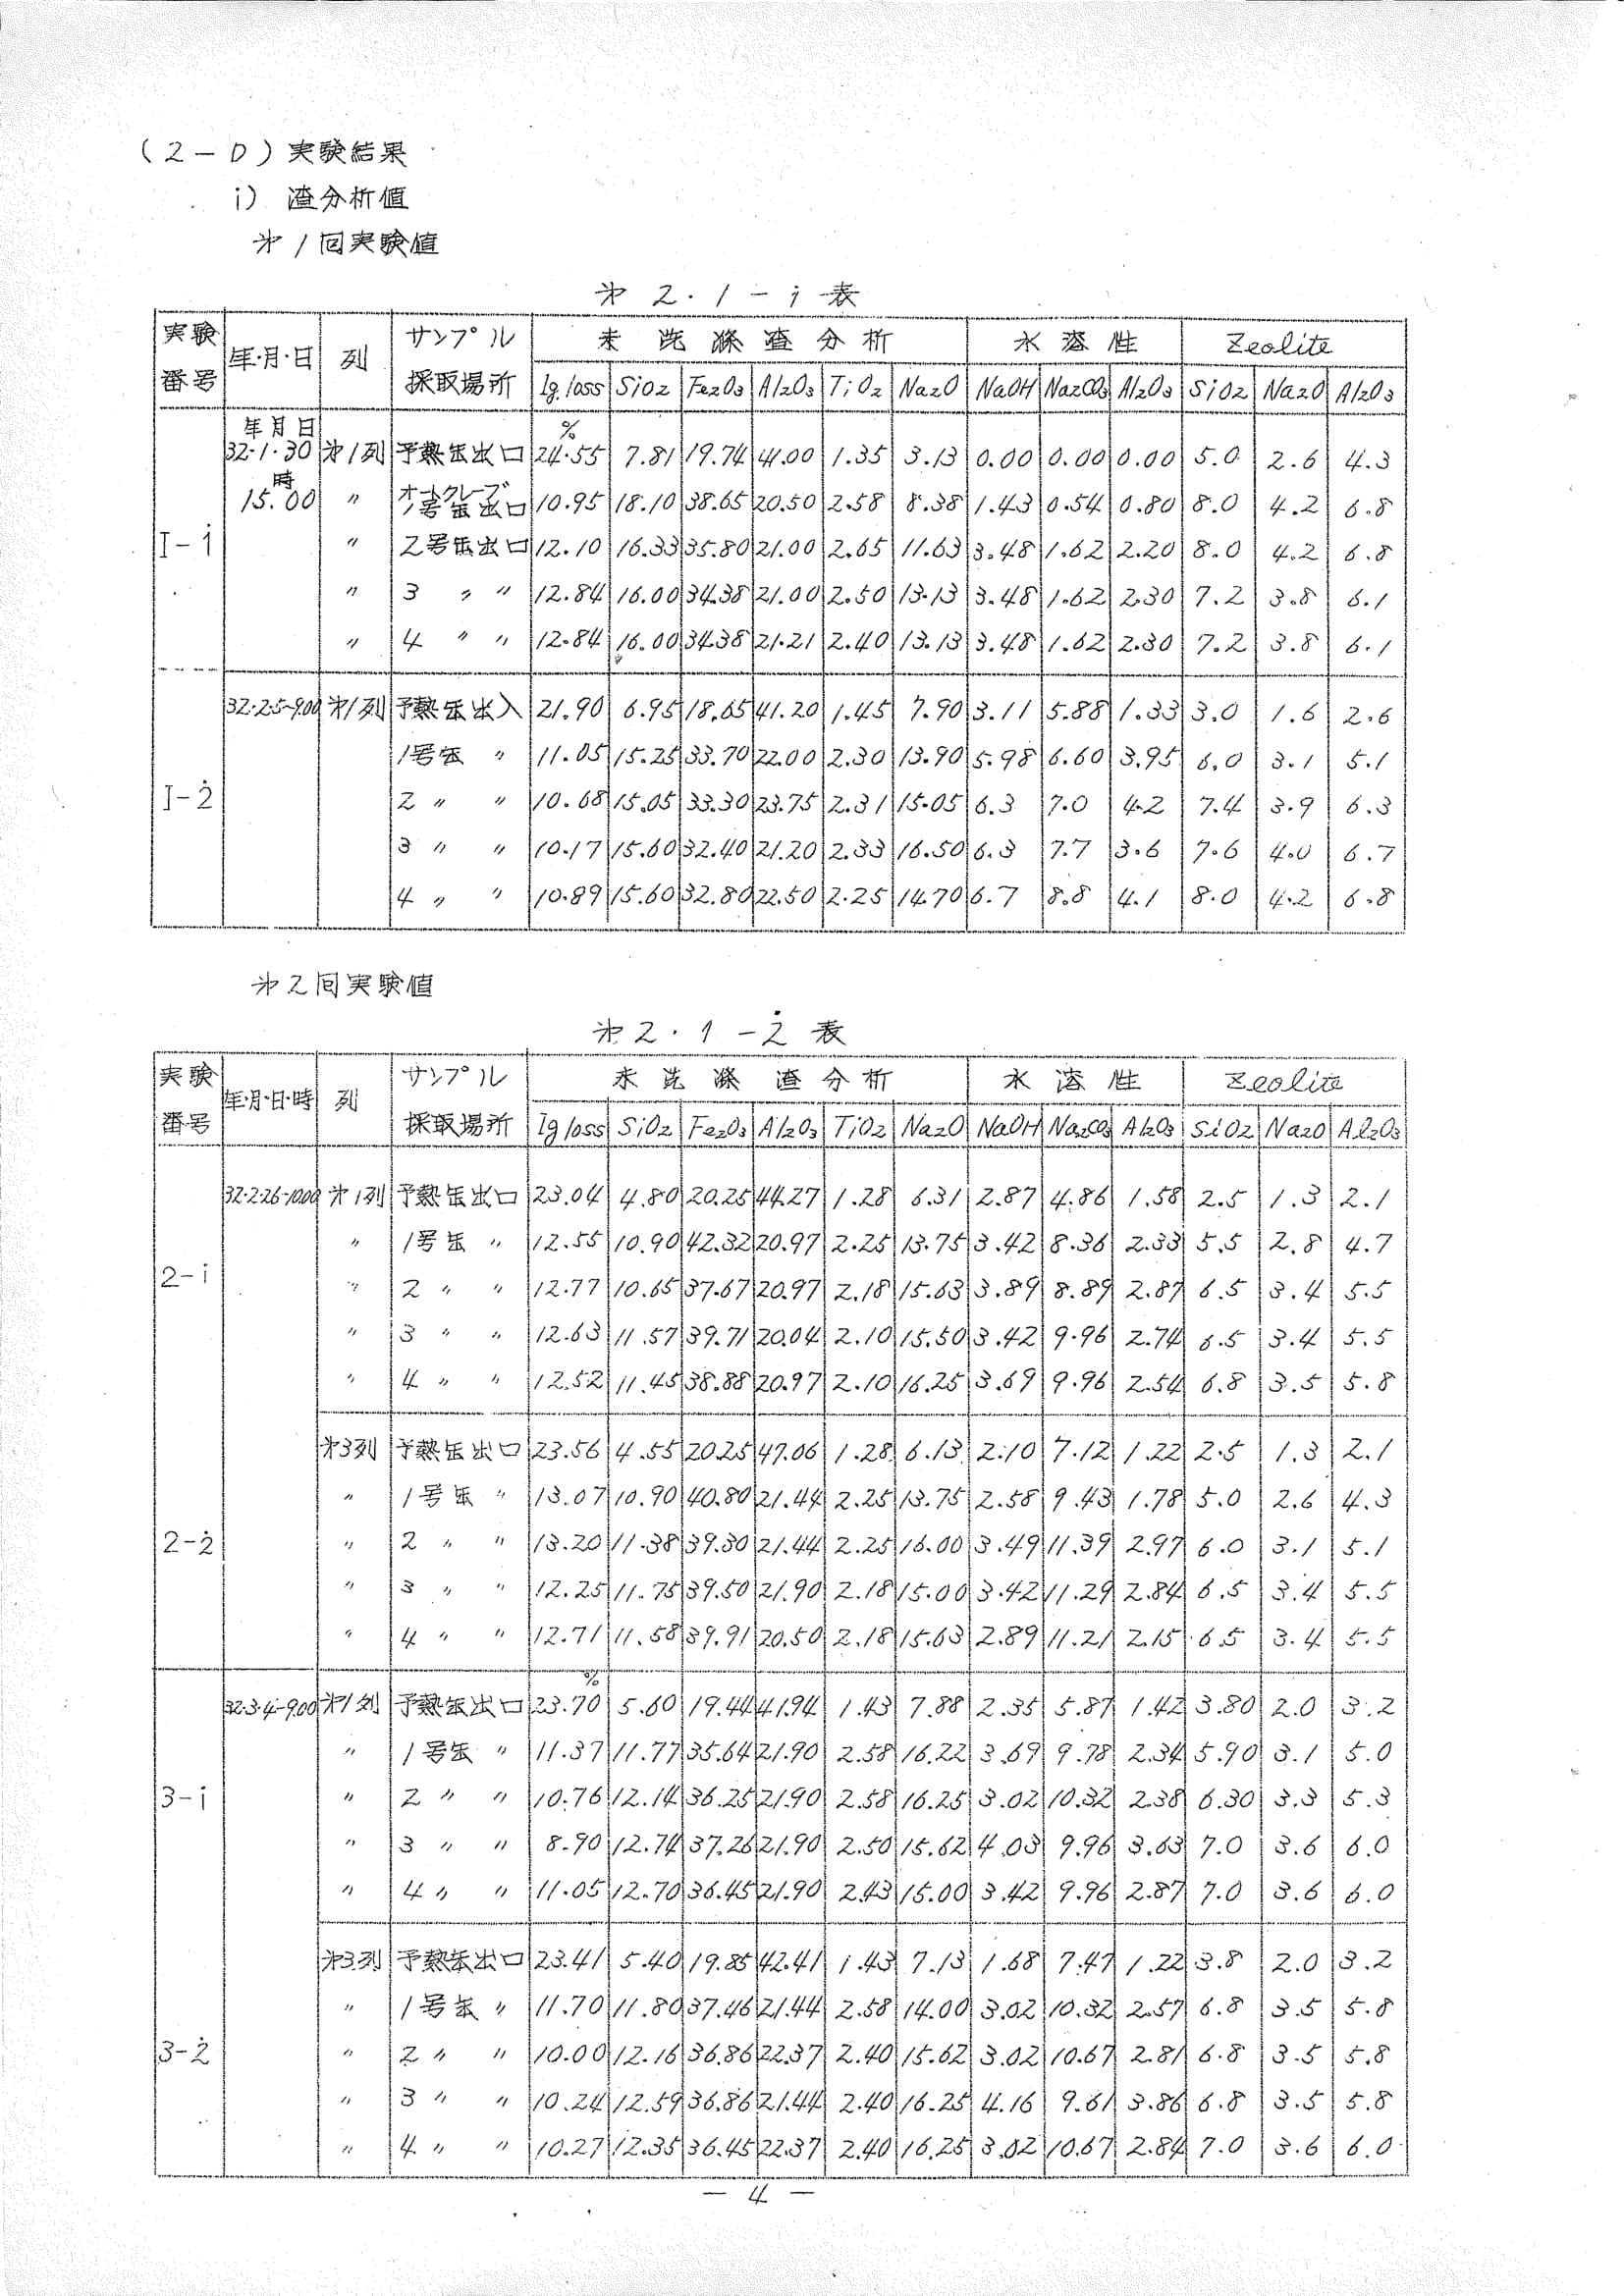 (2-D) 実験結果
i) 渣分析値
㐧1回実験値
㐧2.1-i表
実験番号 年・月・日 列 サンプル採取場所 未洗滌渣分析 水溶性 Zeolite
Ig.loss SiO2 Fe2O3 Al2O3 TiO2 Na2O NaOH Na2CO3 Al2O3 SiO2 Na2O Al2O3
年月日 %
32.1.30 㐧1列 予熱缶出口 24.55 7.81 19.74 41.00 1.35 3.13 0.00 0.00 0.00 5.0 2.6 4.3
時
15.00 〃 オートクレーブ1号缶出口 10.95 18.10 38.65 20.50 2.58 8.38 1.43 0.54 0.80 8.0 4.2 6.8
I-i 〃 2号缶出口 12.10 16.33 35.80 21.00 2.65 11.63 3.48 1.62 2.20 8.0 4.2 6.8
〃 3 〃 〃 12.84 16.00 34.38 21.00 2.50 13.13 3.48 1.62 2.30 7.2 3.8 6.1
〃 4 〃 〃 12.84 16.00 34.38 21.21 2.40 13.13 3.48 1.62 2.30 7.2 3.8 6.1
32.2.5-9.00 㐧1列 予熱缶出入 21.90 6.95 18.65 41.20 1.45 7.90 3.11 5.88 1.33 3.0 1.6 2.6
1号缶 〃 11.05 15.25 33.70 22.00 2.30 13.90 5.98 6.60 3.95 6.0 3.1 5.1
I-2 2 〃 〃 10.68 15.05 33.30 23.75 2.31 15.05 6.3 7.0 4.2 7.4 3.9 6.3
3 〃 〃 10.17 15.60 32.40 21.20 2.33 16.50 6.3 7.7 3.6 7.6 4.0 6.7
4 〃 〃 10.89 15.60 32.80 22.50 2.25 14.70 6.7 8.8 4.1 8.0 4.2 6.8
㐧2回実験値
㐧2.1-2表
実験番号 年・月・日・時 列 サンプル採取場所 未洗滌渣分析 水溶性 Zeolite
Ig loss SiO2 Fe2O3 Al2O3 TiO2 Na2O NaOH Na2CO3 Al2O3 SiO2 Na2O Al2O3
32.2.26-10.00 㐧1列 予熱缶出口 23.04 4.80 20.25 44.27 1.28 6.31 2.87 4.86 1.58 2.5 1.3 2.1
〃 1号缶 〃 12.55 10.90 42.32 20.97 2.25 13.75 3.42 8.36 2.33 5.5 2.8 4.7
2-i 〃 2 〃 〃 12.77 10.65 37.67 20.97 2.18 15.63 3.89 8.89 2.87 6.5 3.4 5.5
〃 3 〃 〃 12.63 11.57 39.71 20.04 2.10 15.50 3.42 9.96 2.74 6.5 3.4 5.5
〃 4 〃 〃 12.52 11.45 38.88 20.97 2.10 16.25 3.69 9.96 2.54 6.8 3.5 5.8
㐧3列 予熱缶出口 23.56 4.55 20.25 47.06 1.28 6.13 2.10 7.12 1.22 2.5 1.3 2.1
〃 1号缶 〃 13.07 10.90 40.80 21.44 2.25 13.75 2.58 9.43 1.78 5.0 2.6 4.3
2-2 〃 2 〃 〃 13.20 11.38 39.30 21.44 2.25 16.00 3.49 11.39 2.97 6.0 3.1 5.1
〃 3 〃 〃 12.25 11.75 39.50 21.90 2.18 15.00 3.42 11.29 2.84 6.5 3.4 5.5
〃 4 〃 〃 12.71 11.58 39.91 20.50 2.18 15.63 2.89 11.21 2.15 6.5 3.4 5.5
%
32.3.4-9.00 㐧1列 予熱缶出口 23.70 5.60 19.44 41.94 1.43 7.88 2.35 5.87 1.42 3.80 2.0 3.2
〃 1号缶 〃 11.37 11.77 35.64 21.90 2.58 16.22 3.69 9.78 2.34 5.90 3.1 5.0
3-i 〃 2 〃 〃 10.76 12.14 36.25 21.90 2.58 16.25 3.02 10.32 2.38 6.30 3.3 5.3
〃 3 〃 〃 8.90 12.74 37.26 21.90 2.50 15.62 4.03 9.96 3.63 7.0 3.6 6.0
〃 4 〃 〃 11.05 12.70 36.45 21.90 2.43 15.00 3.42 9.96 2.87 7.0 3.6 6.0
㐧3列 予熱缶出口 23.41 5.40 19.85 42.41 1.43 7.13 1.68 7.47 1.22 3.8 2.0 3.2
〃 1号缶 〃 11.70 11.80 37.46 21.44 2.58 14.00 3.02 10.32 2.57 6.8 3.5 5.8
3-2 〃 2 〃 〃 10.00 12.16 36.86 22.37 2.40 15.62 3.02 10.67 2.81 6.8 3.5 5.8
〃 3 〃 〃 10.24 12.59 36.86 21.44 2.40 16.25 4.16 9.61 3.86 6.8 3.5 5.8
〃 4 〃 〃 10.27 12.35 36.45 22.37 2.40 16.25 3.02 10.67 2.84 7.0 3.6 6.0
— 4 —